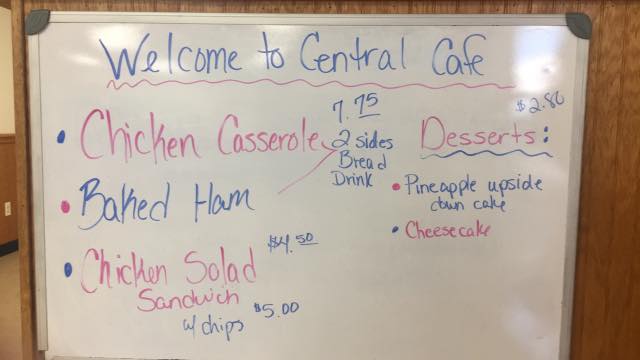 Welcome to Central Cafe
• Chicken Casserole
• Baked Ham
7.75
2 sides
Bread
Drink
• Chicken Salad
Sandwich
$4.50
w/ chips $5.00
$2.80
Desserts:
• Pineapple upside
down cake
• Cheesecake